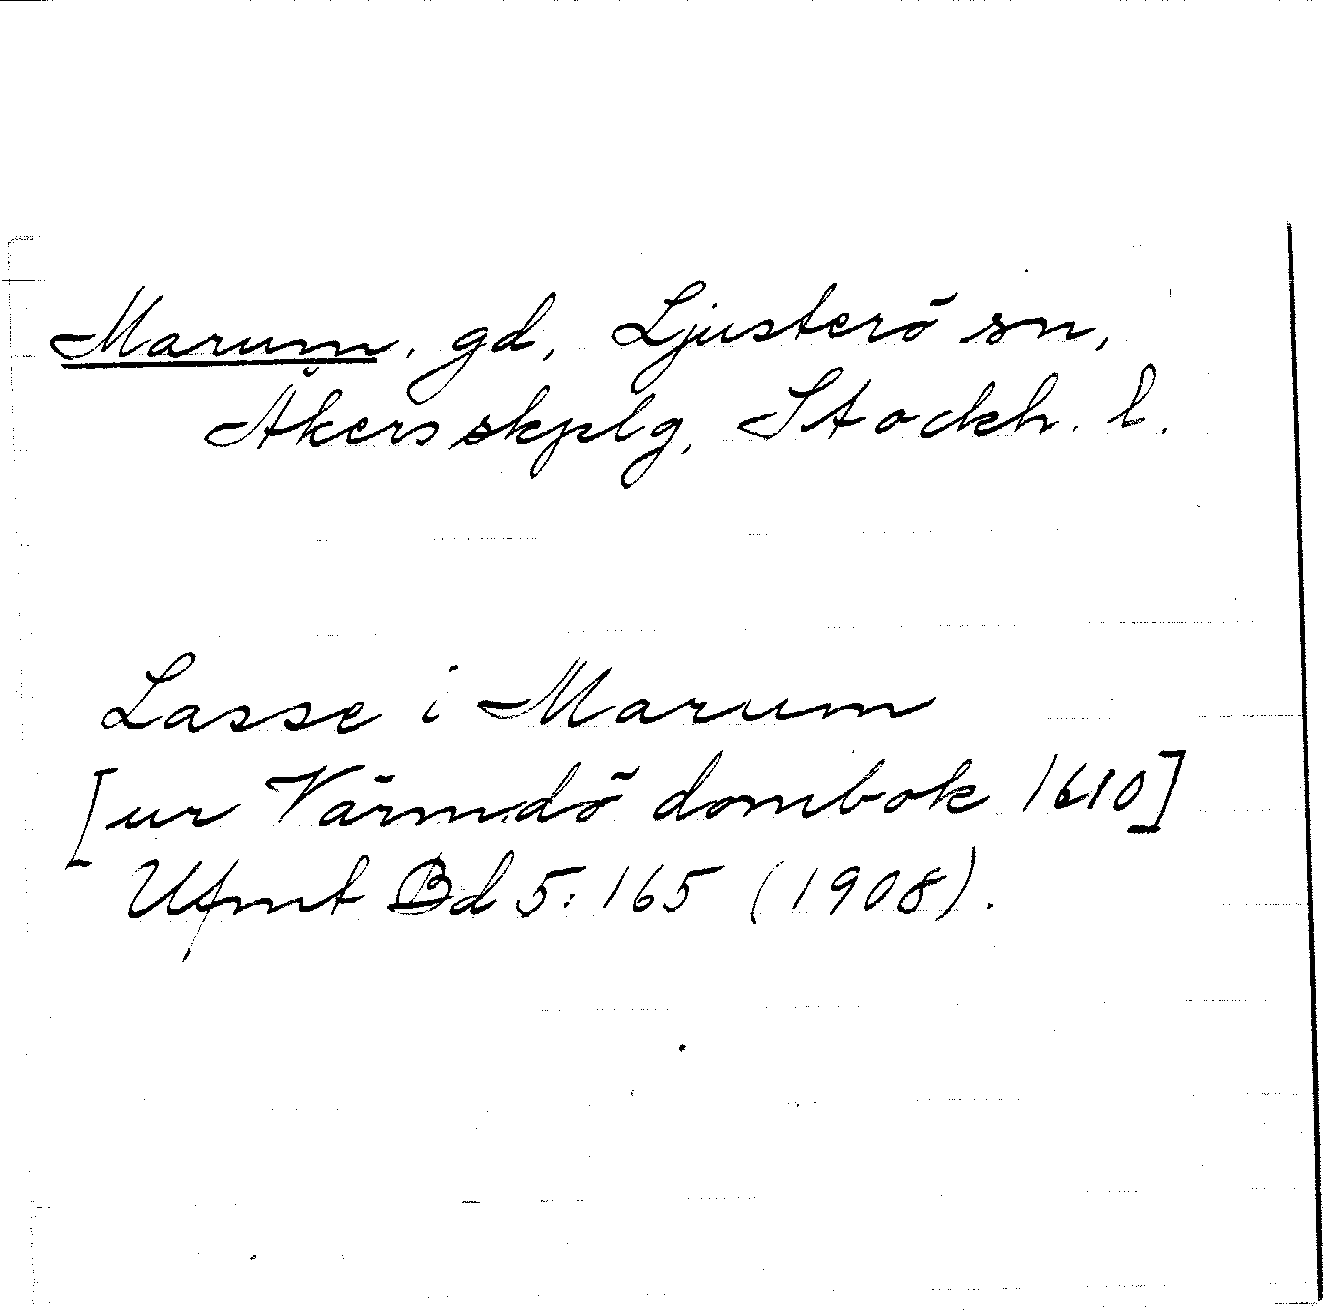 Marum, gd, Ljusterö sn,
Åkers skplg, Stockh. l.
Lasse i Marum
[ur Värmdö dombok 1610]
Ufmt Bd 5: 165 (1908).